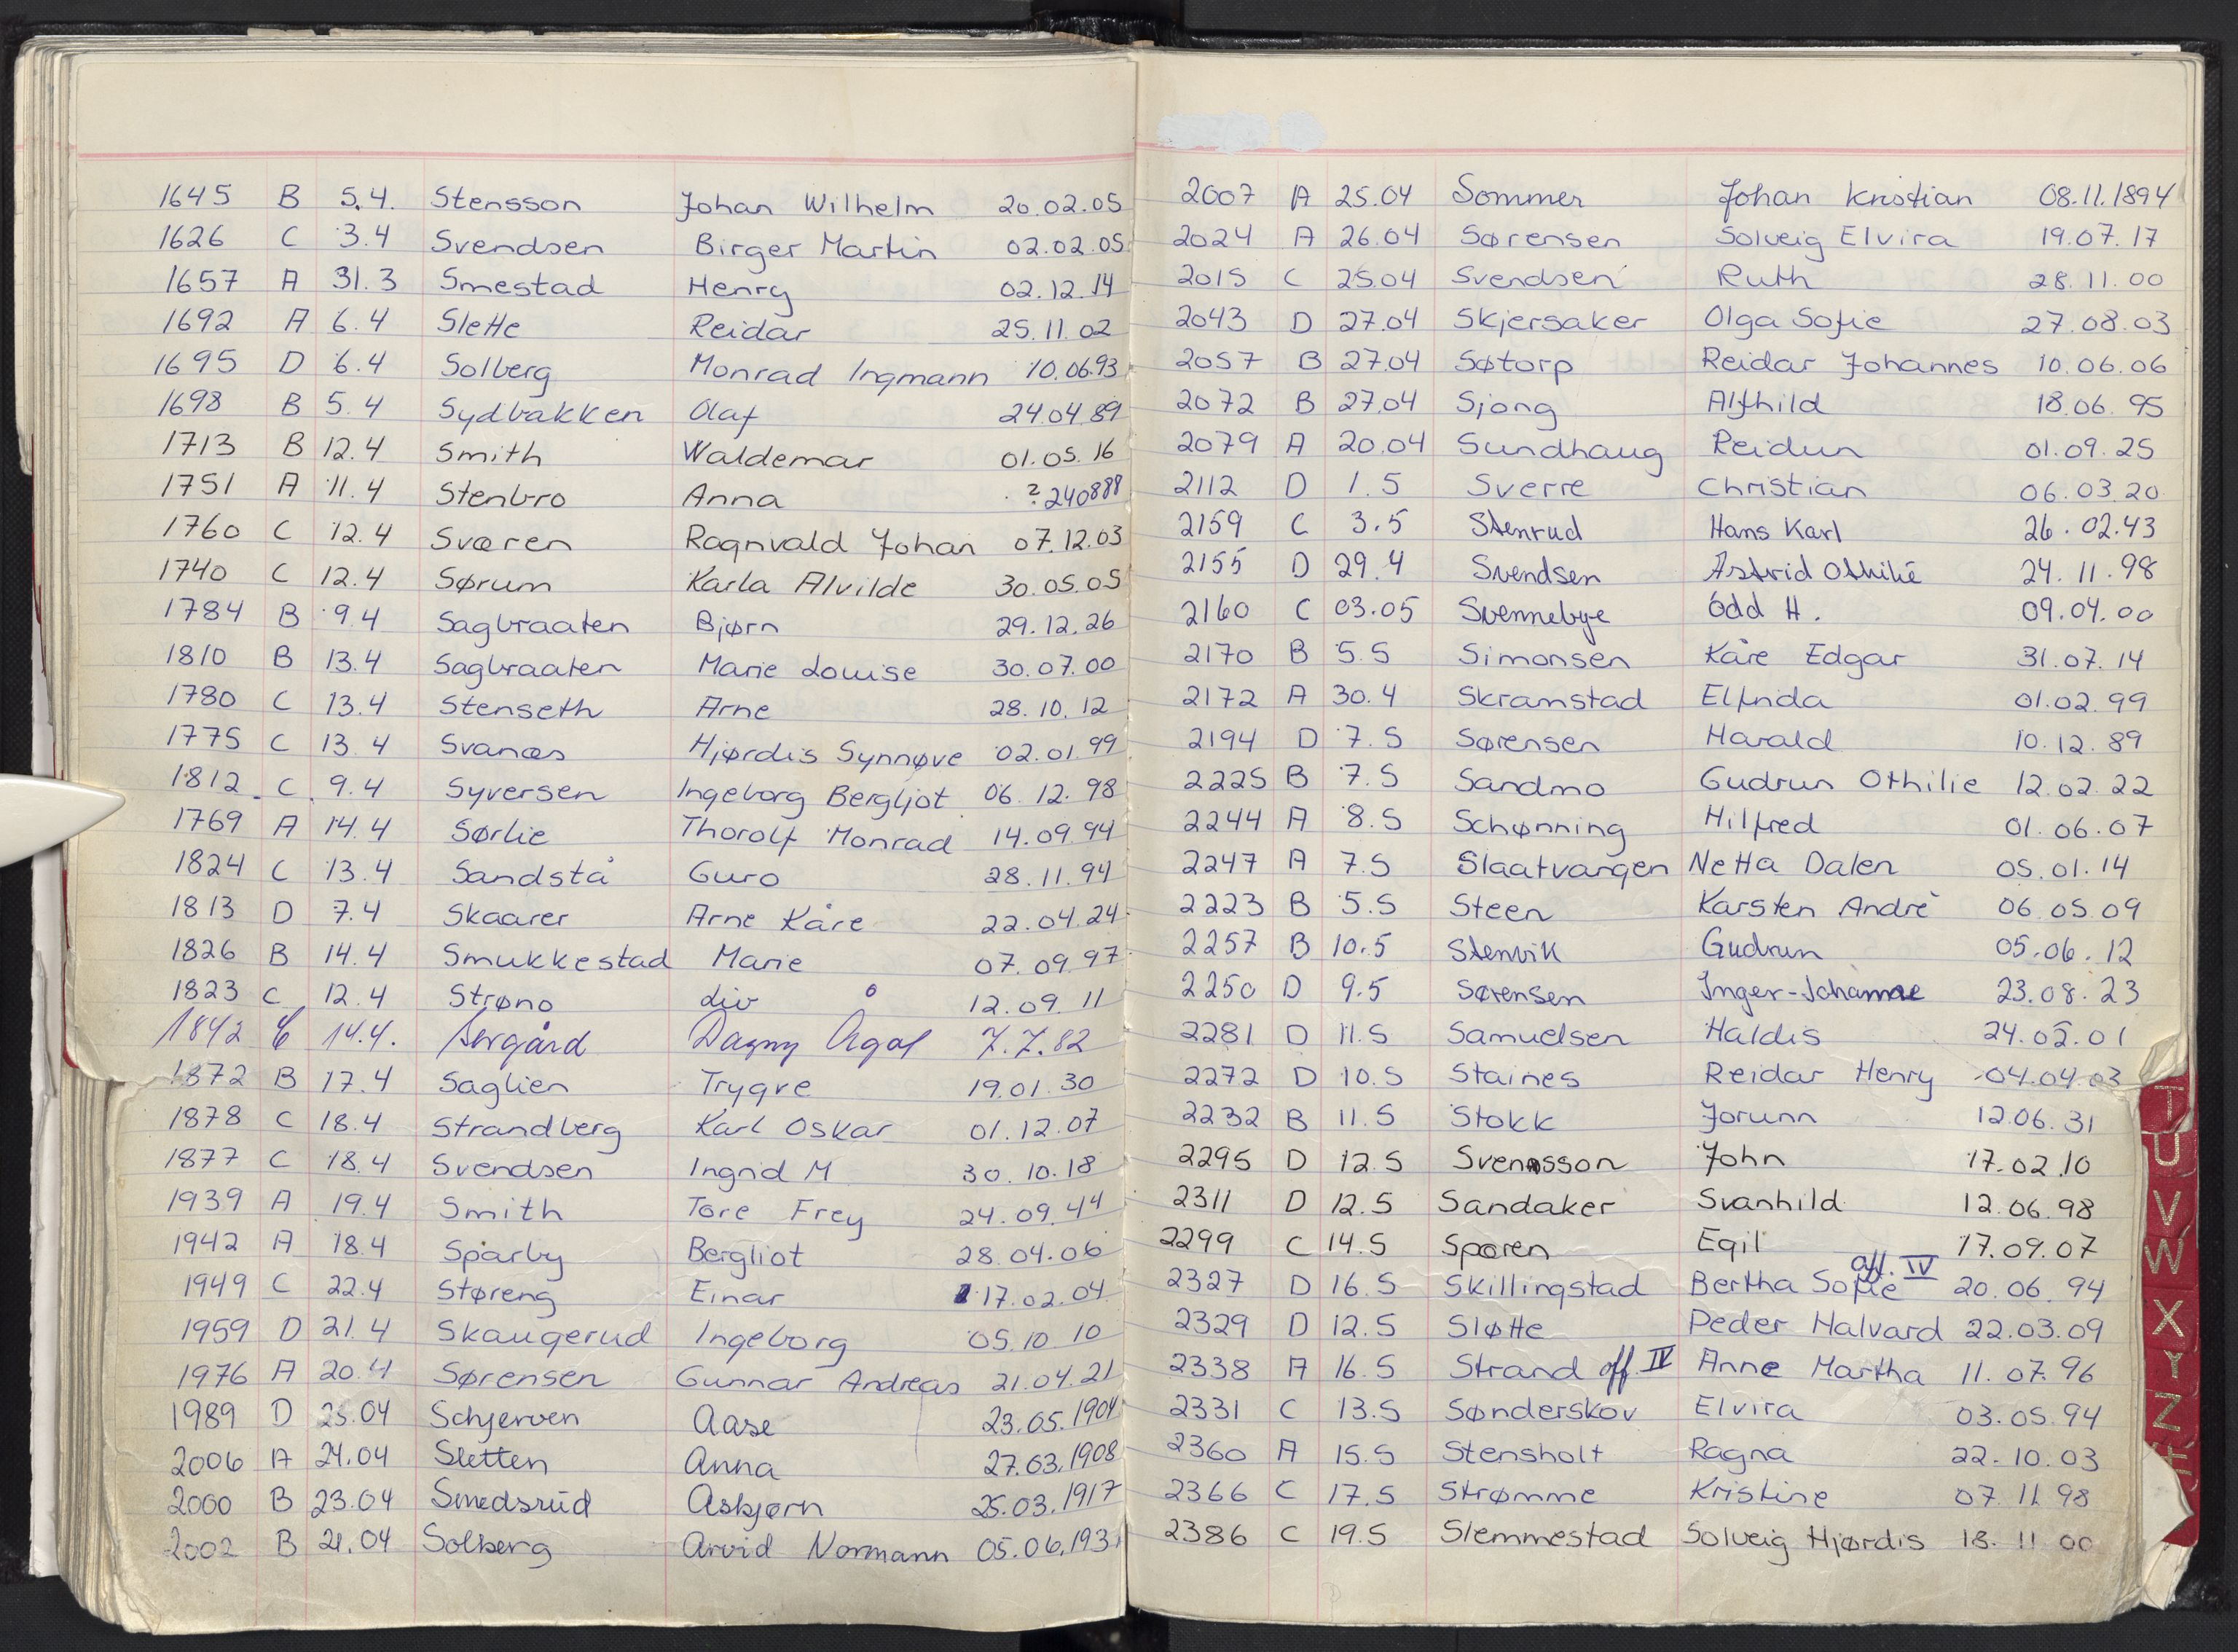 1645 B 5.4. Stensson Johan Wilhelm 20.02.05
1626 C 3.4 Svendsen Birger Martin 02.02.05
1657 A 31.3 Smestad Henry 02.12.14
1692 A 6.4 Slette Reidar 25.11.02
1695 D 6.4 Solberg Monrad Ingmann 10.06.93
1698 B 5.4 Sydbakken Olaf 24.04.89
1713 B 12.4 Smith Waldemar 01.05.16
1751 A 11.4 Stenbro Anna ? 240888
1760 C 12.4 Sværen Ragnvald Johan 07.12.03
1740 C 12.4 Sørum Karla Alvilde 30.05.05
1784 B 9.4 Sagbraaten Bjørn 29.12.26
1810 B 13.4 Sagbraaten Marie Louise 30.07.00
1780 C 13.4 Stenseth Arne 28.10.12
1775 C 13.4 Svanæs Hjørdis Synnøve 02.01.99
1812 C 9.4 Syversen Ingeborg Bergljot 06.12.98
1769 A 14.4 Sørlie Thorolf Monrad 14.09.94
1824 C 13.4 Sandstå Guro 28.11.94
1813 D 7.4 Skaarer Arne Kåre 22.04.24
1826 B 14.4 Smukkestad Marie 07.09.97
1823 C 12.4 Strøno Liv 12.09.11
1842 C 14.4. Dagny 7.7.82
1872 B 17.4 Saglien Trygve 19.01.30
1878 C 18.4 Strandberg Karl Oskar 01.12.07
1877 C 18.4 Svendsen Ingrid M 30.10.18
1939 A 19.4 Smith Tore Frey 24.09.44
1942 A 18.4 Sparby Bergliot 28.04.06
1949 C 22.4 Støreng Einar 17.02.04
1959 D 21.4 Skaugerud Ingeborg 05.10 10
1976 A 20.4 Sørensen Gunnar Andreas 21.04.21
1989 D 25.04 Schjerven Aase 23.05.1904
2006 A 24.04 Sletten Anna 27.03.1908
2000 B 23.04 Smedsrud Asbjørn 25.03.1917
2002 B 21.04 Solberg Arvid Normann 05.06.193
2007 A 25.04 Sommer Johan Kristian 08.11.1894
2024 A 26.04 Sørensen Solveig Elvira 19.07.17
2015 C 25.04 Svendsen Ruth 28.11.00
2043 D 27.04 Skjersaker Olga Sofie 27.08.03
2057 B 27.04 Søtorp Reidar Johannes 10.06.06
2072 B 27.04 Sjong Alfhild 18.06.95
2079 A 20.04 Sundhaug Reidun 01.09.25
2112 D 1.5 Sverre Christian 06.03.20
2159 C 3.5 Stenrud Hans Karl 26.02.43
2155 D 29.4 Svendsen Astrid Othilie 24.11.98
2160 C 03.05 Svennebye Odd H. 09.04.00
2170 B 5.5 Simonsen Kåre Edgar 31.07.14
2172 A 30.4 Skramstad Elfrida 01.02.99
2194 D 7.5 Sørensen Harald 10.12.89
2225 B 7.5 Sandmo Gudrun Othilie 12.02.22
2244 A 8.5 Schønning Hilfred 01.06.07
2247 A 7.5 Slaatvangen Netta Dalen 05.01.14
2223 B 5.5 Steen Karsten Andrè 06.05.09
2257 B 10.5 Stenvik Gudrun 05.06.12
2250 D 9.5 Sørensen Inger-Johanne 23.08.23
2281 D 11.5 Samuelsen Haldis 24.05.01
2272 D 10.5 Staines Reidar Henry 04.04.03
2232 B 11.5 Stokk Jorunn 12.06.31
2295 D 12.5 Svensson John 17.02.10
2311 D 12.5 Sandaker Svanhild 12.06.98
2299 C 14.5 Sporen Egil 17.09.07
aff. IV
2327 D 16.5 Skillingstad Bertha Sofie 20.06.94
2329 D 12.5 Sløtte Peder Halvard 22.03.09
2338 A 16.5 Strand off. IV Anne Martha 11.07.96
2331 C 13.5 Sønderskov Elvira 03.05.94
2360 A 15.5 Stensholt Ragna 22.10.03
2366 C 17.5 Strømme Kristine 07.11.98
2386 C 19.5 Slemmestad Solveig Hjørdis 18.11 00
T
U
V
W
X
Y
Z